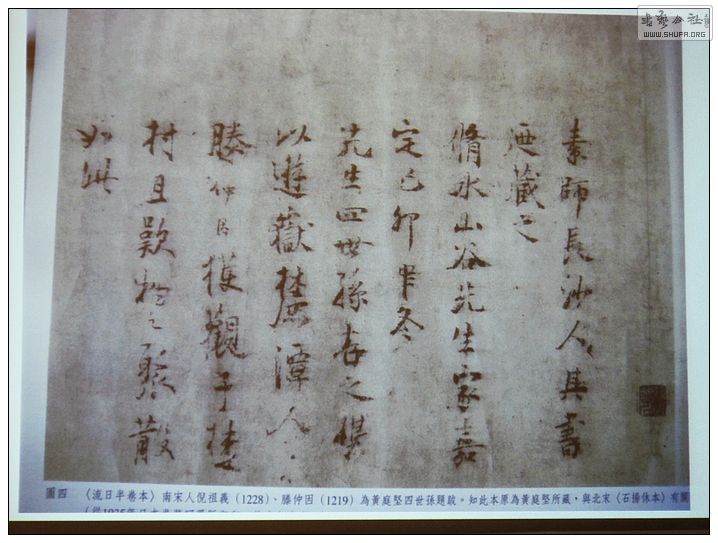 素師長沙人其書
迺藏之
脩水山谷先生家嘉
定己卯中冬
先生四世孫存之携
以遊嶽麓潭人
滕仲因獲觀于楚
村且歎物之聚散
如此
圖四 〈流日半卷本〉南宋人倪祖義(1228)、滕仲因(1219)為黃庭堅四世孫題跋。知此本原為黃庭堅所藏,與北宋〈石揚休本〉有關
書藝公社
WWW.SHUFA.ORG